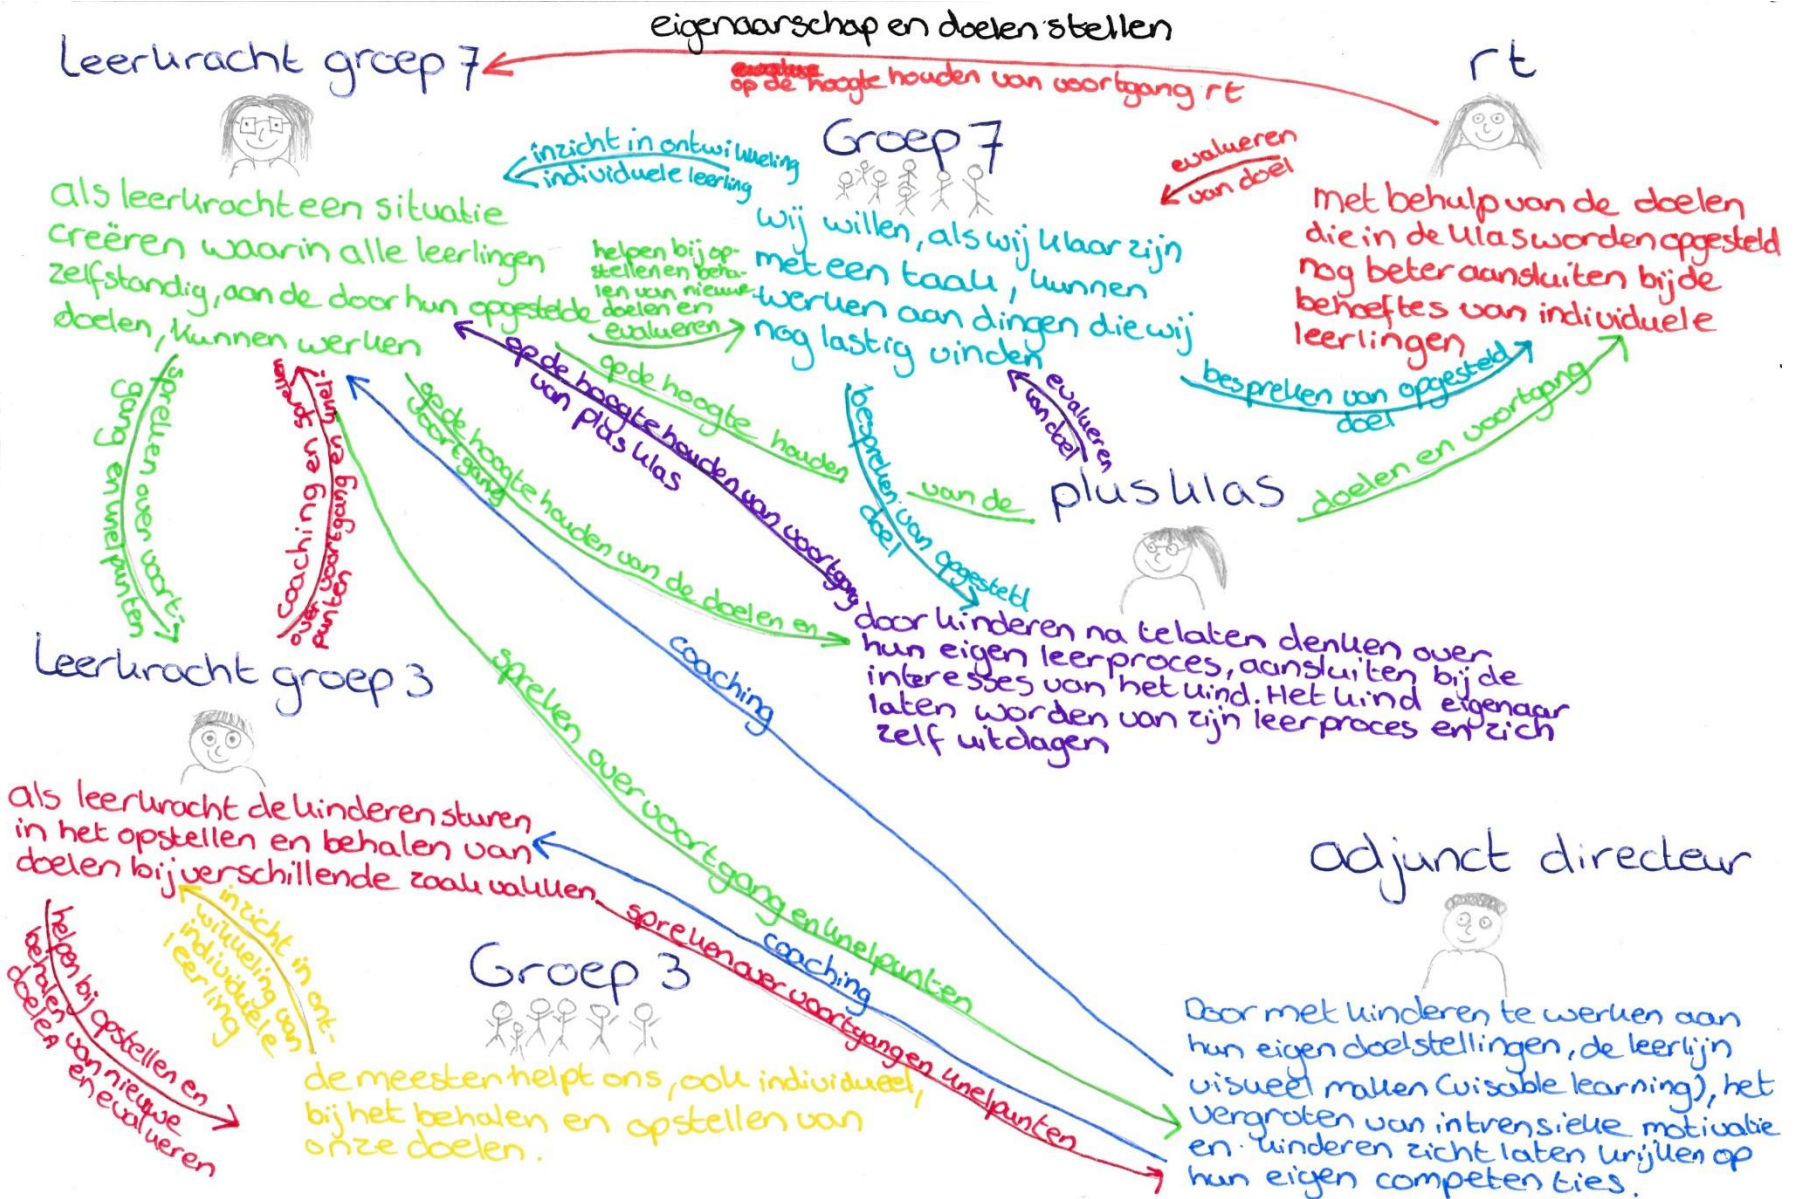 eigenaarschap en doelen stellen
leerkracht groep 7
op de hoogte houden van voortgang rt
rt
Groep 7
inzicht in ontwikkeling
individuele leerling
evalueren
van doel
als leerkracht een situatie
creëren waarin alle leerlingen
zelfstandig, aan de door hun opgestelde
doelen, kunnen werken
helpen bij op-
stellen en beha-
len van nieuwe
doelen en
evalueren
wij willen, als wij klaar zijn
met een taak, kunnen
werken aan dingen die wij
nog lastig vinden
met behulp van de doelen
die in de klas worden opgesteld
nog beter aansluiten bij de
behoeftes van individuele
leerlingen
bespreken van opgesteld
doel
op de hoogte houden van de doelen en voortgang
op de hoogte houden van voortgang
van plusklas
evalueren
van doel
bespreken van opgesteld
doel
plusklas
op de hoogte houden van de doelen en
voortgang
spreken over voort-
gang en knelpunten
coaching en sparren
over voortgang en knel-
punten
door kinderen na te laten denken over
hun eigen leerproces, aansluiten bij de
interesses van het kind. Het kind eigenaar
laten worden van zijn leerproces en zich
zelf uitdagen
leerkracht groep 3
coaching
spreken over voortgang en knelpunten
als leerkracht de kinderen sturen
in het opstellen en behalen van
doelen bij verschillende zaakvakken.
adjunct directeur
inzicht in ont-
wikkeling van
individuele
leerling
helpen bij opstellen en
behalen van nieuwe
doelen en evalueren
Groep 3
coaching
spreken over voortgang en knelpunten
de meester helpt ons, ook individueel,
bij het behalen en opstellen van
onze doelen.
Door met kinderen te werken aan
hun eigen doelstellingen, de leerlijn
visueel maken (visable learning), het
vergroten van intrensieke motivatie
en kinderen zicht laten krijgen op
hun eigen competenties.